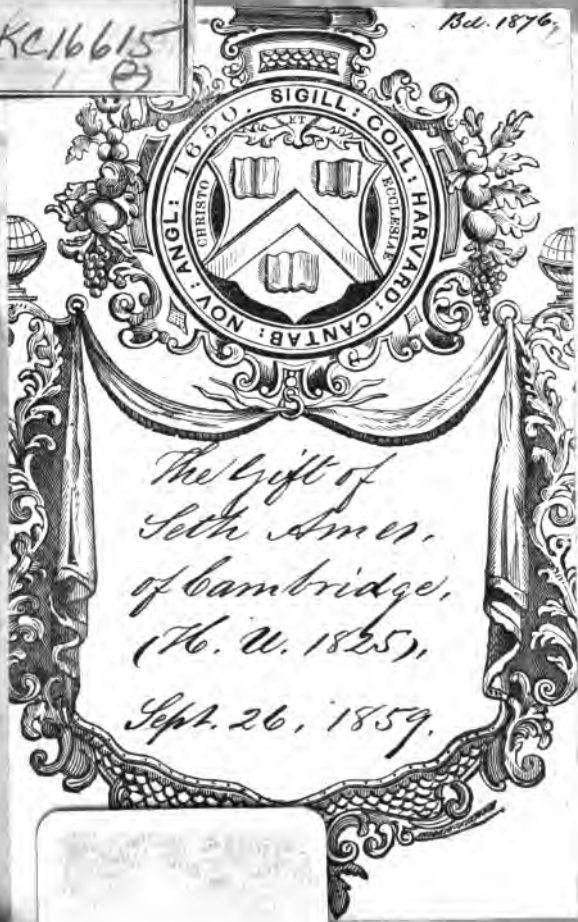 KC16615
1 (2)
Bd. 1876.
SIGILL: COLL: HARVARD: CANTAB: NOV: ANGL: 1650.
ET
CHRISTO
ECCLESIAE
The Gift of
Seth Ames,
of Cambridge,
(H. U. 1825),
Sept. 26, 1859.